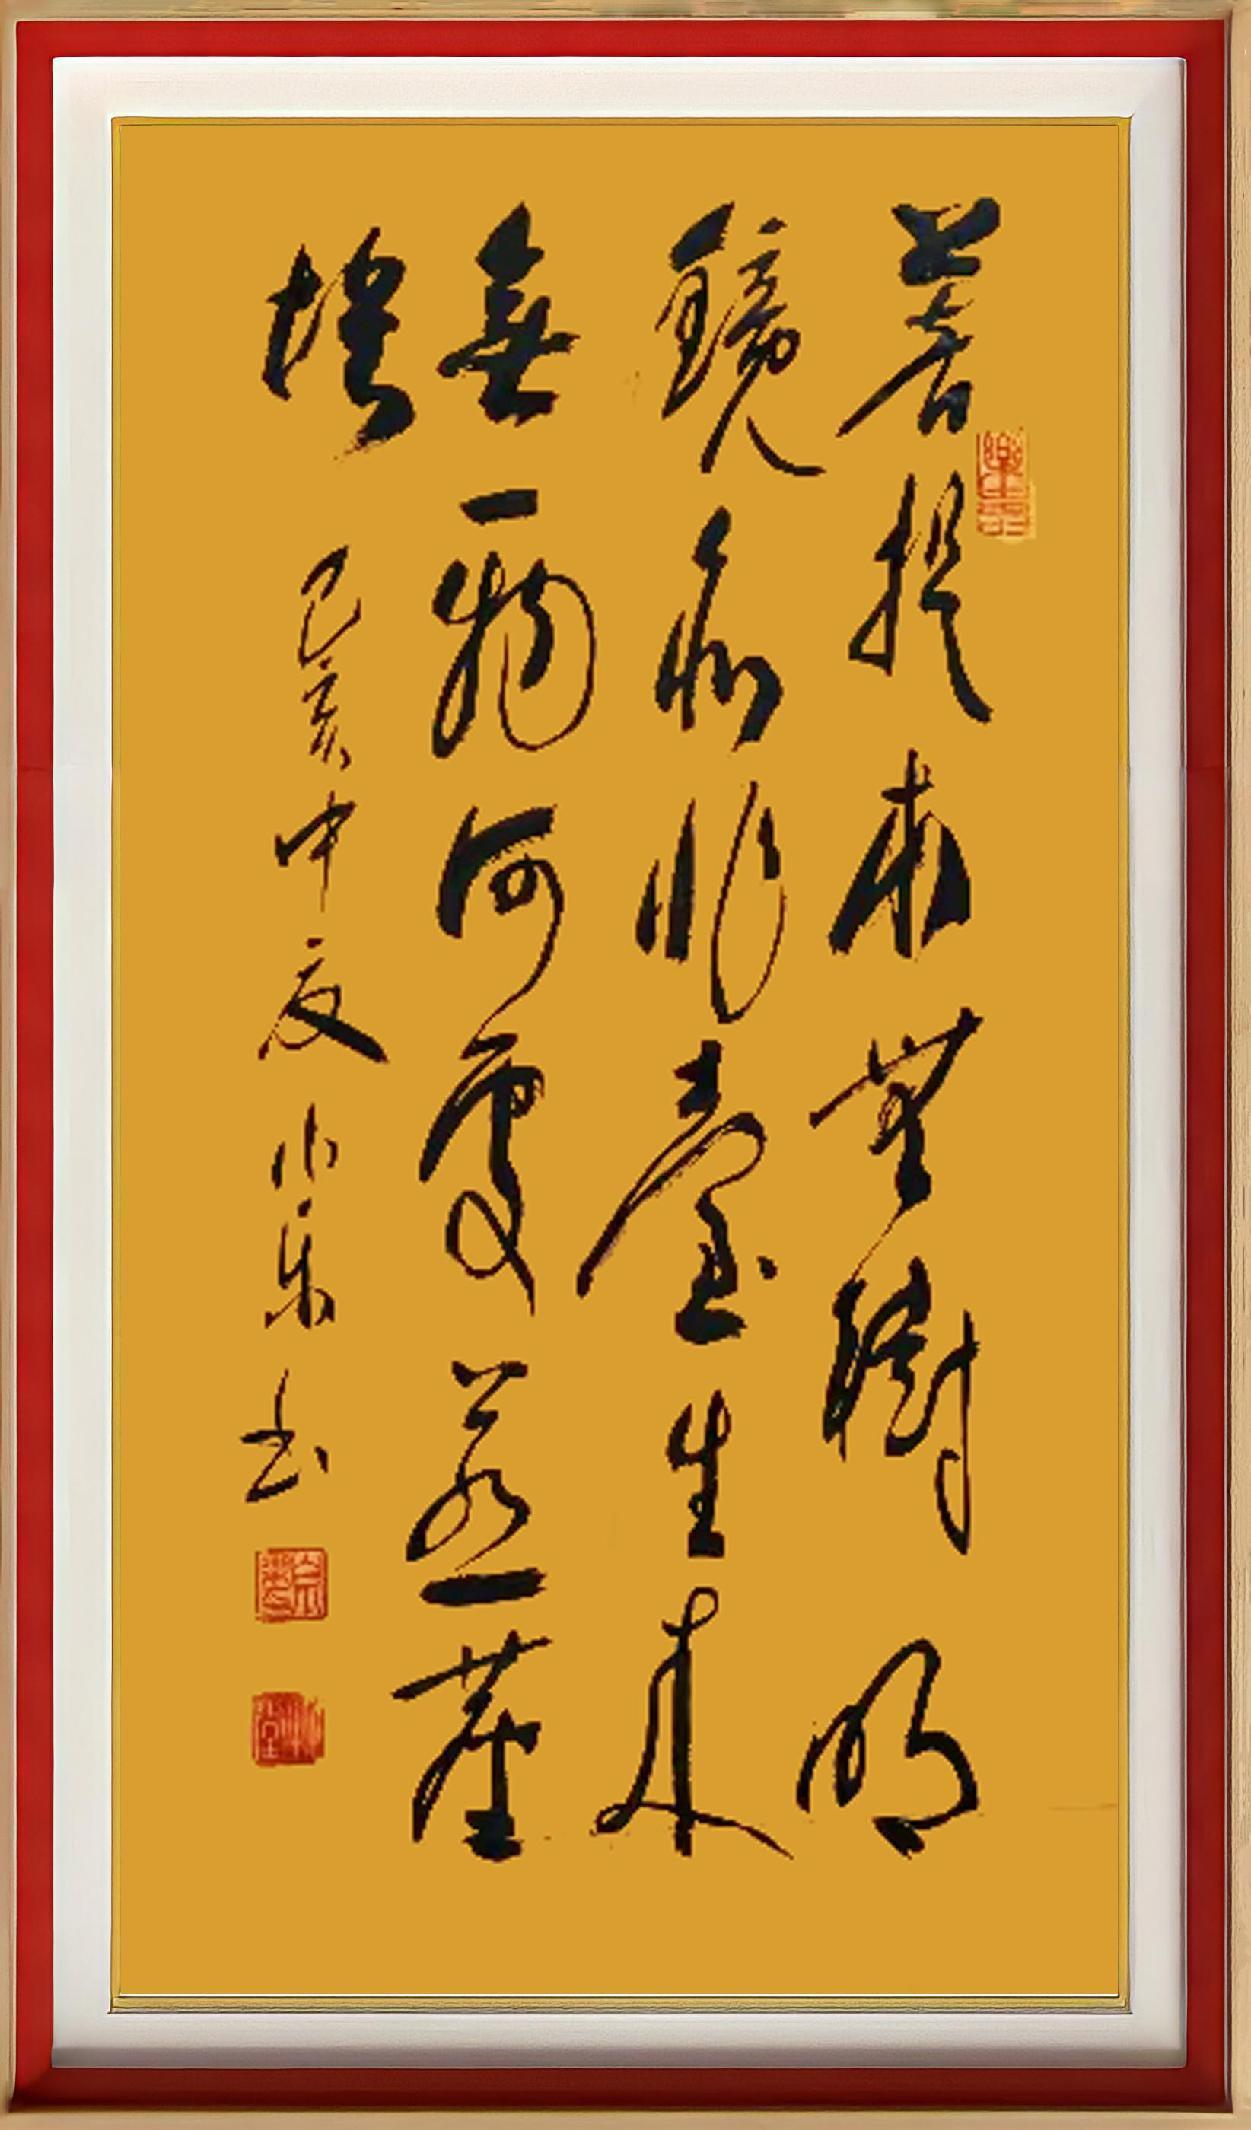 菩提本無樹明
鏡亦非臺生来
無一物何處惹塵
埃 己亥中夏 小乐书